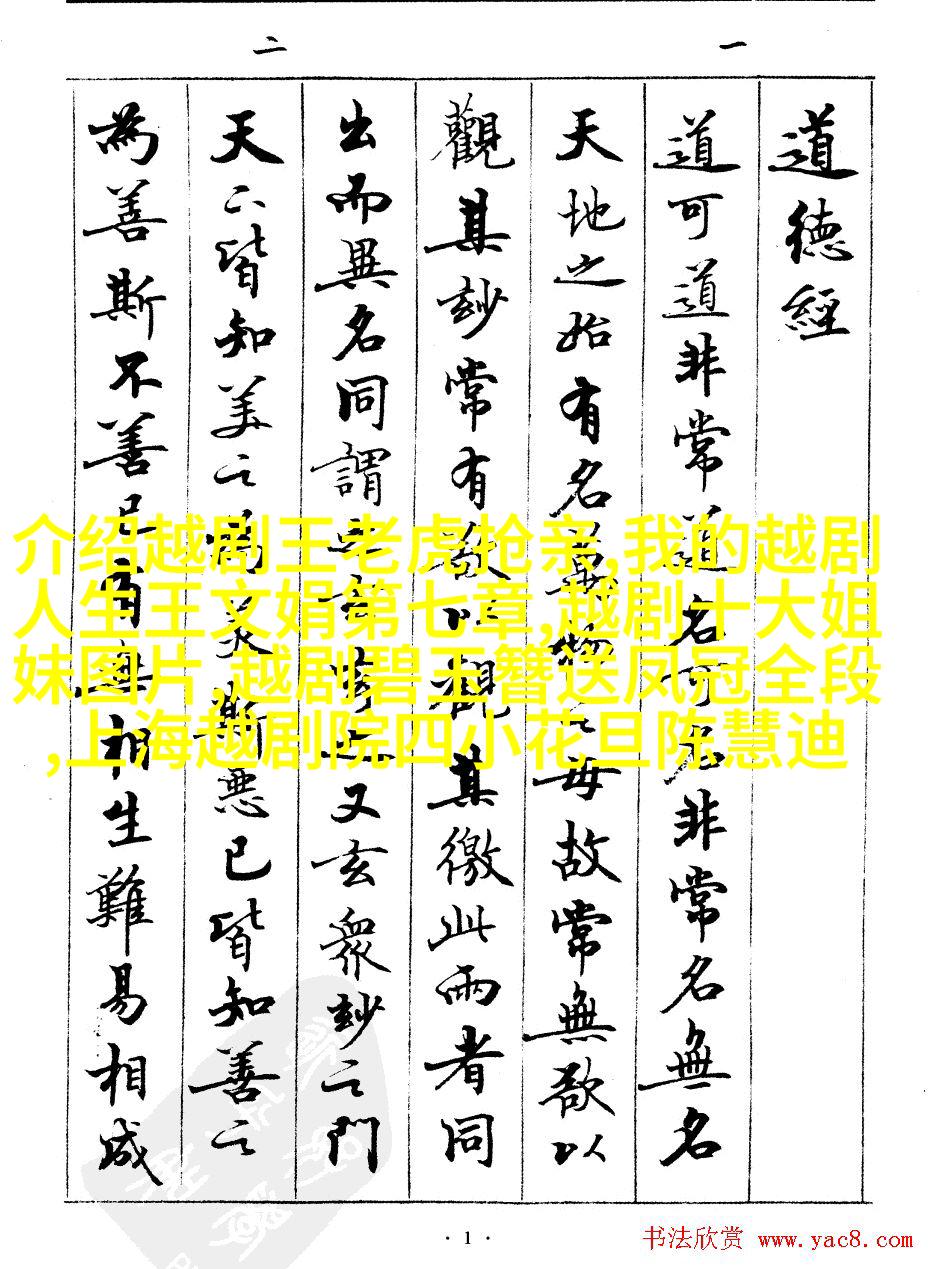 一
道德經
道可道非常道名可名非常名無名
天地之始有名萬物之母故常無欲以
觀其玅常有欲以觀其徼此兩者同
二
出而異名同謂之玄玄之又玄眾玅之門
天下皆知美之為美斯惡已皆知善之
為善斯不善已有無相生難易相成
介绍越剧王老虎抢亲,我的越剧
人生王文娟第七章,越剧十大姐
妹图片,越剧碧玉簪送凤冠全段
,上海越剧院四小花旦陈慧迪
· 1 ·
书法欣赏 www.yac8.com